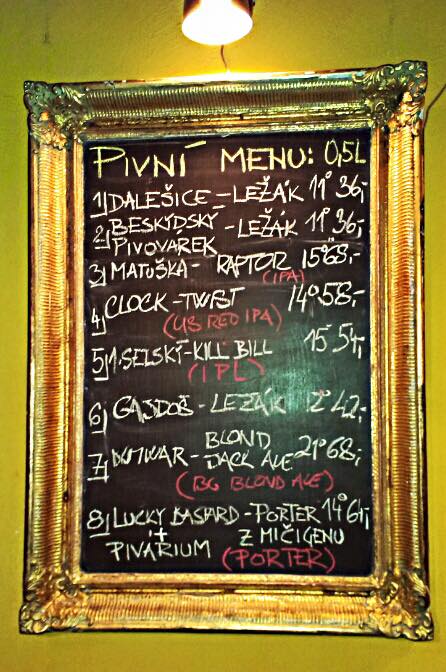 PIVNÍ MENU: 0,5L
1) DALEŠICE - LEŽÁK 11° 36,-
2) BESKYDSKÝ PIVOVAREK - LEŽÁK 11° 36,-
3) MATUŠKA - RAPTOR 15° 68,-
(IPA)
4) CLOCK - TWIST 14° 58,-
(US RED IPA)
5) 1. SELSKÝ - KILL BILL 15 54,-
(IPL)
6) GAJDOŠ - LEŽÁK 12° 42,-
7) BLOND
JACK ALE 21° 68,-
(BG BLOND ALE)
8) LUCKY BASTARD - PORTER 14° 64,-
+
PIVÁRIUM Z MIČIGENU
(PORTER)